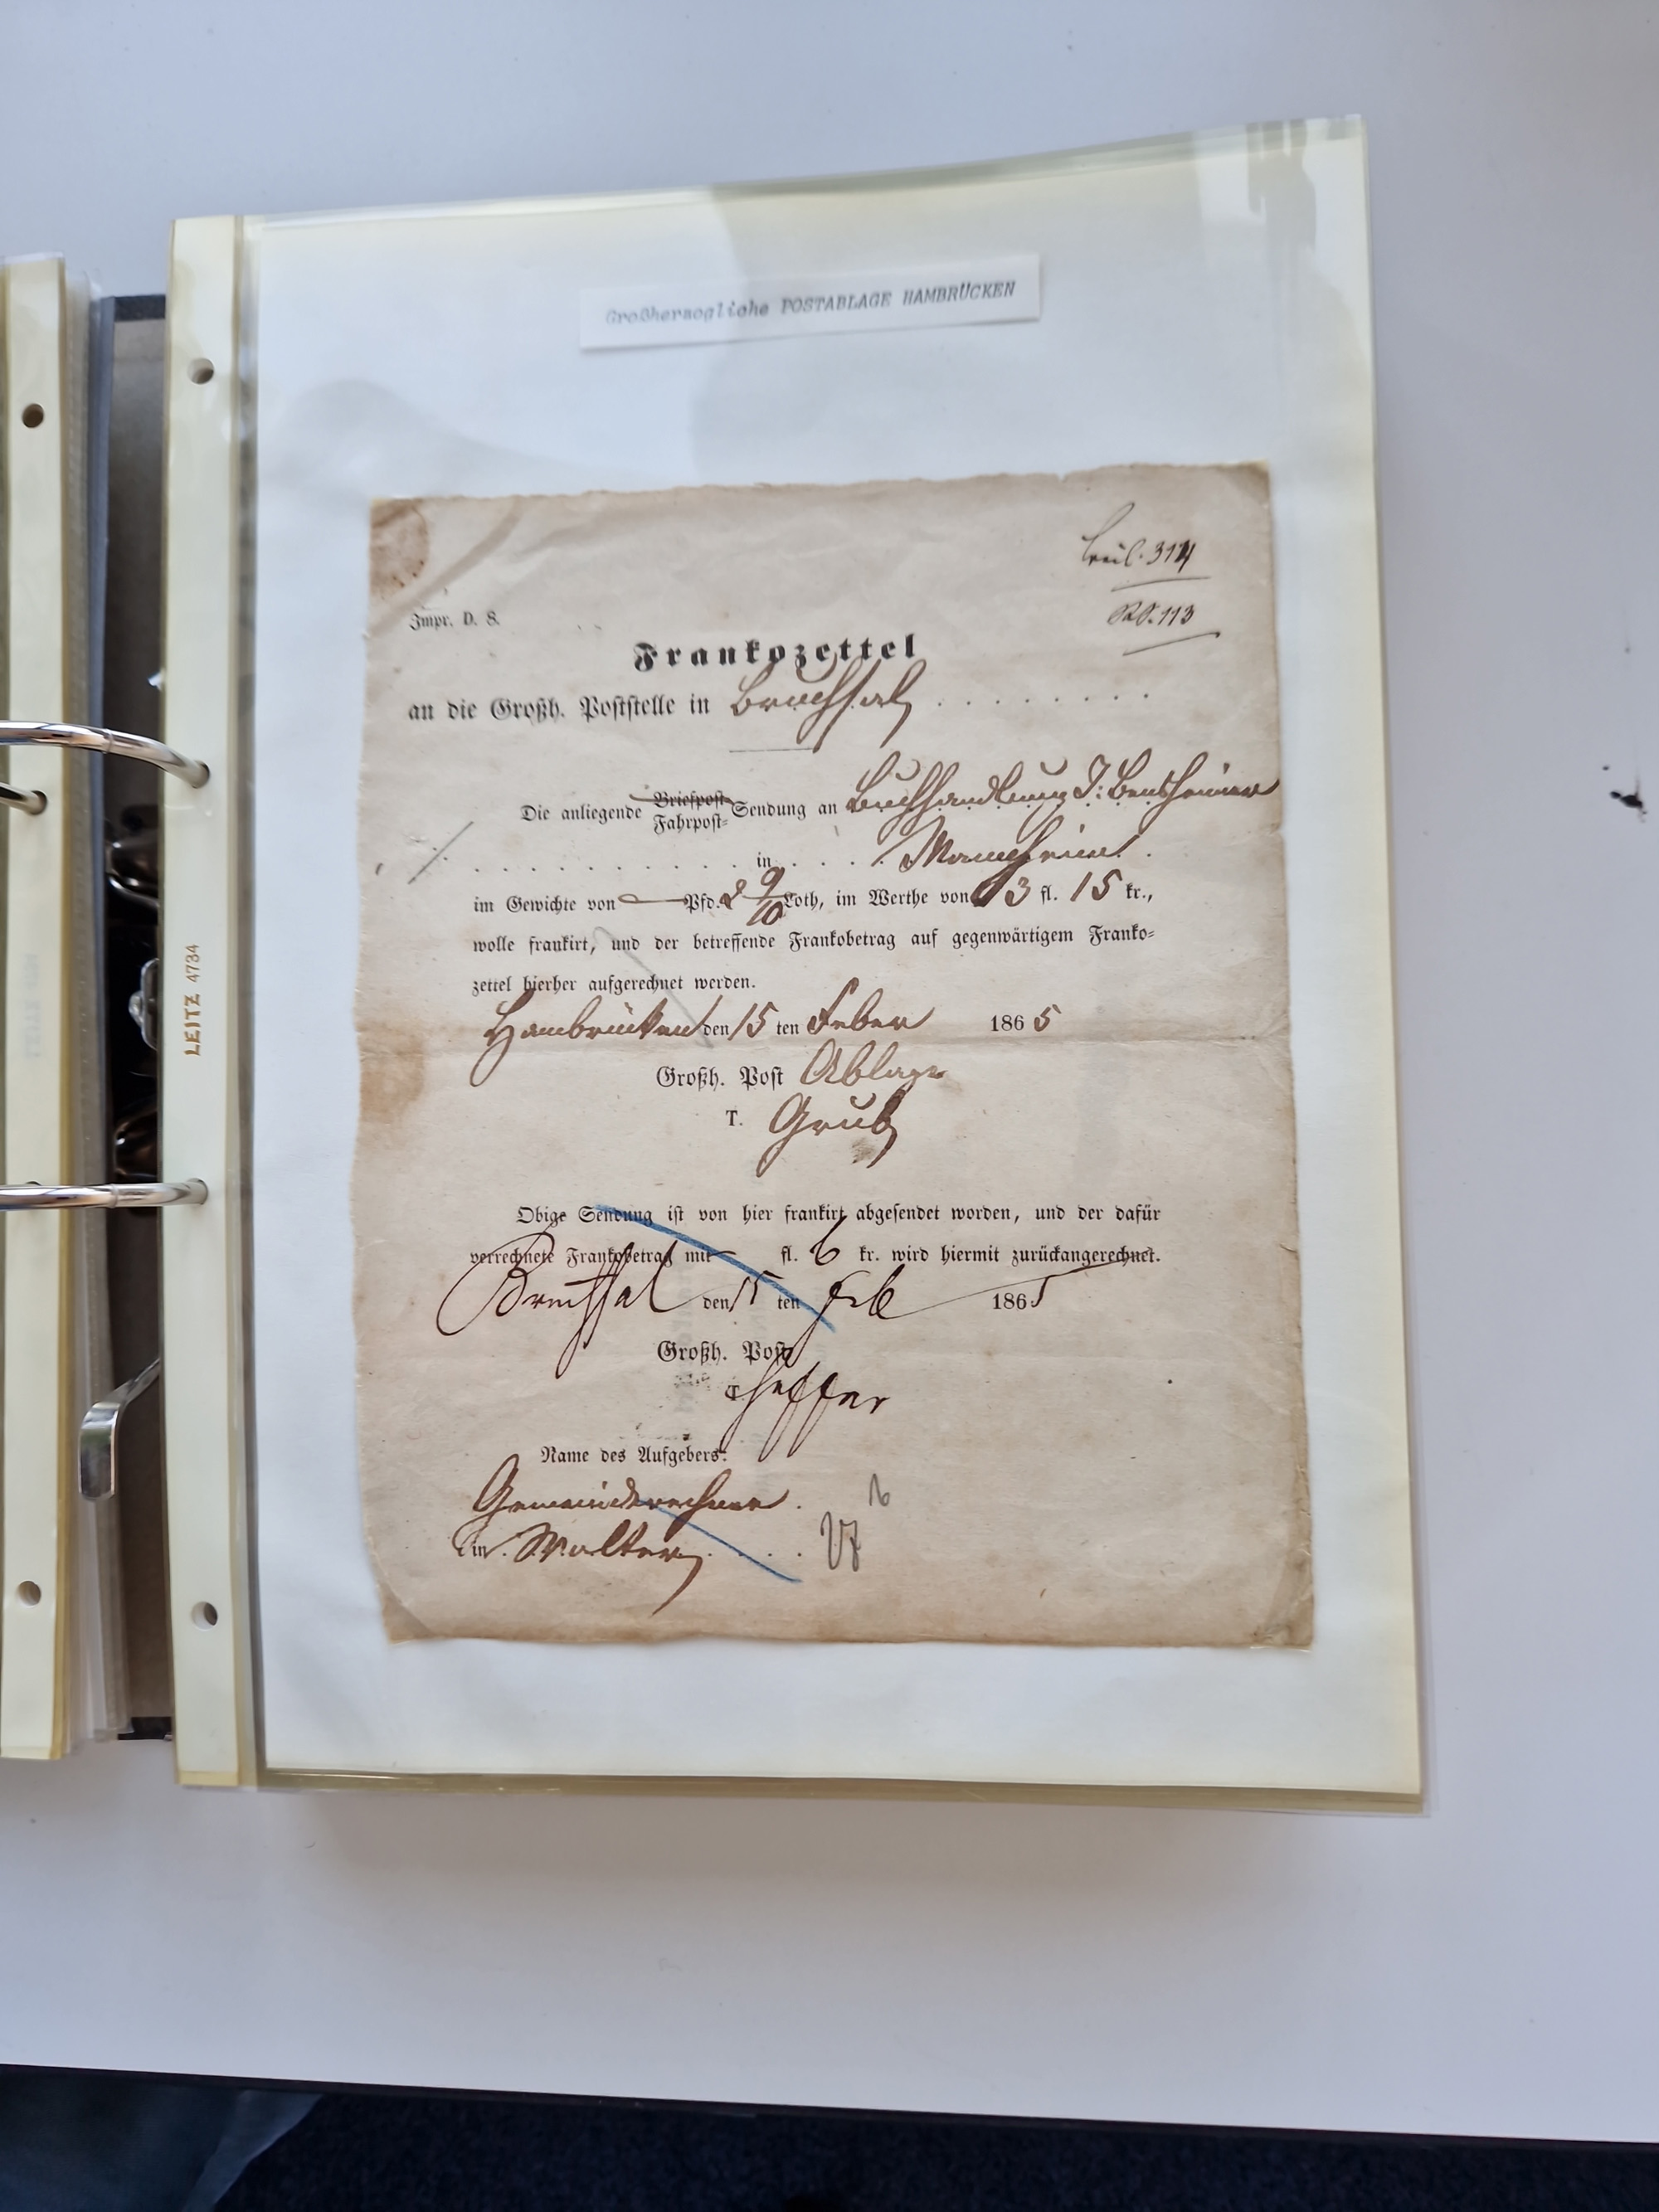 Großherzogliche POSTABLAGE HAMBRÜCKEN
Beil. 314
113
Impr. D. 8.
Frankozettel
an die Großh. Poststelle in Bruchsal
Die anliegende Briefpost- Fahrpost- Sendung an Buchhandlung J. Bensheimer
in Mannheim
im Gewichte von Pfd. 2 9/10 Loth, im Werthe von 13 fl. 15 kr.,
wolle frankirt, und der betreffende Frankobetrag auf gegenwärtigem Franko-
zettel hierher aufgerechnet werden.
Hambrücken den 15 ten Feber 1865
Großh. Post Ablage
T. Grub
Obige Sendung ist von hier frankirt abgesendet worden, und der dafür
verrechnete Frankobetrag mit fl. 6 kr. wird hiermit zurückangerechnet.
Bruchsal den 15 ten Feb 1865
Großh. Post
Name des Aufgebers:
Gemeinderechner
in Walter
6
LEITZ 4734